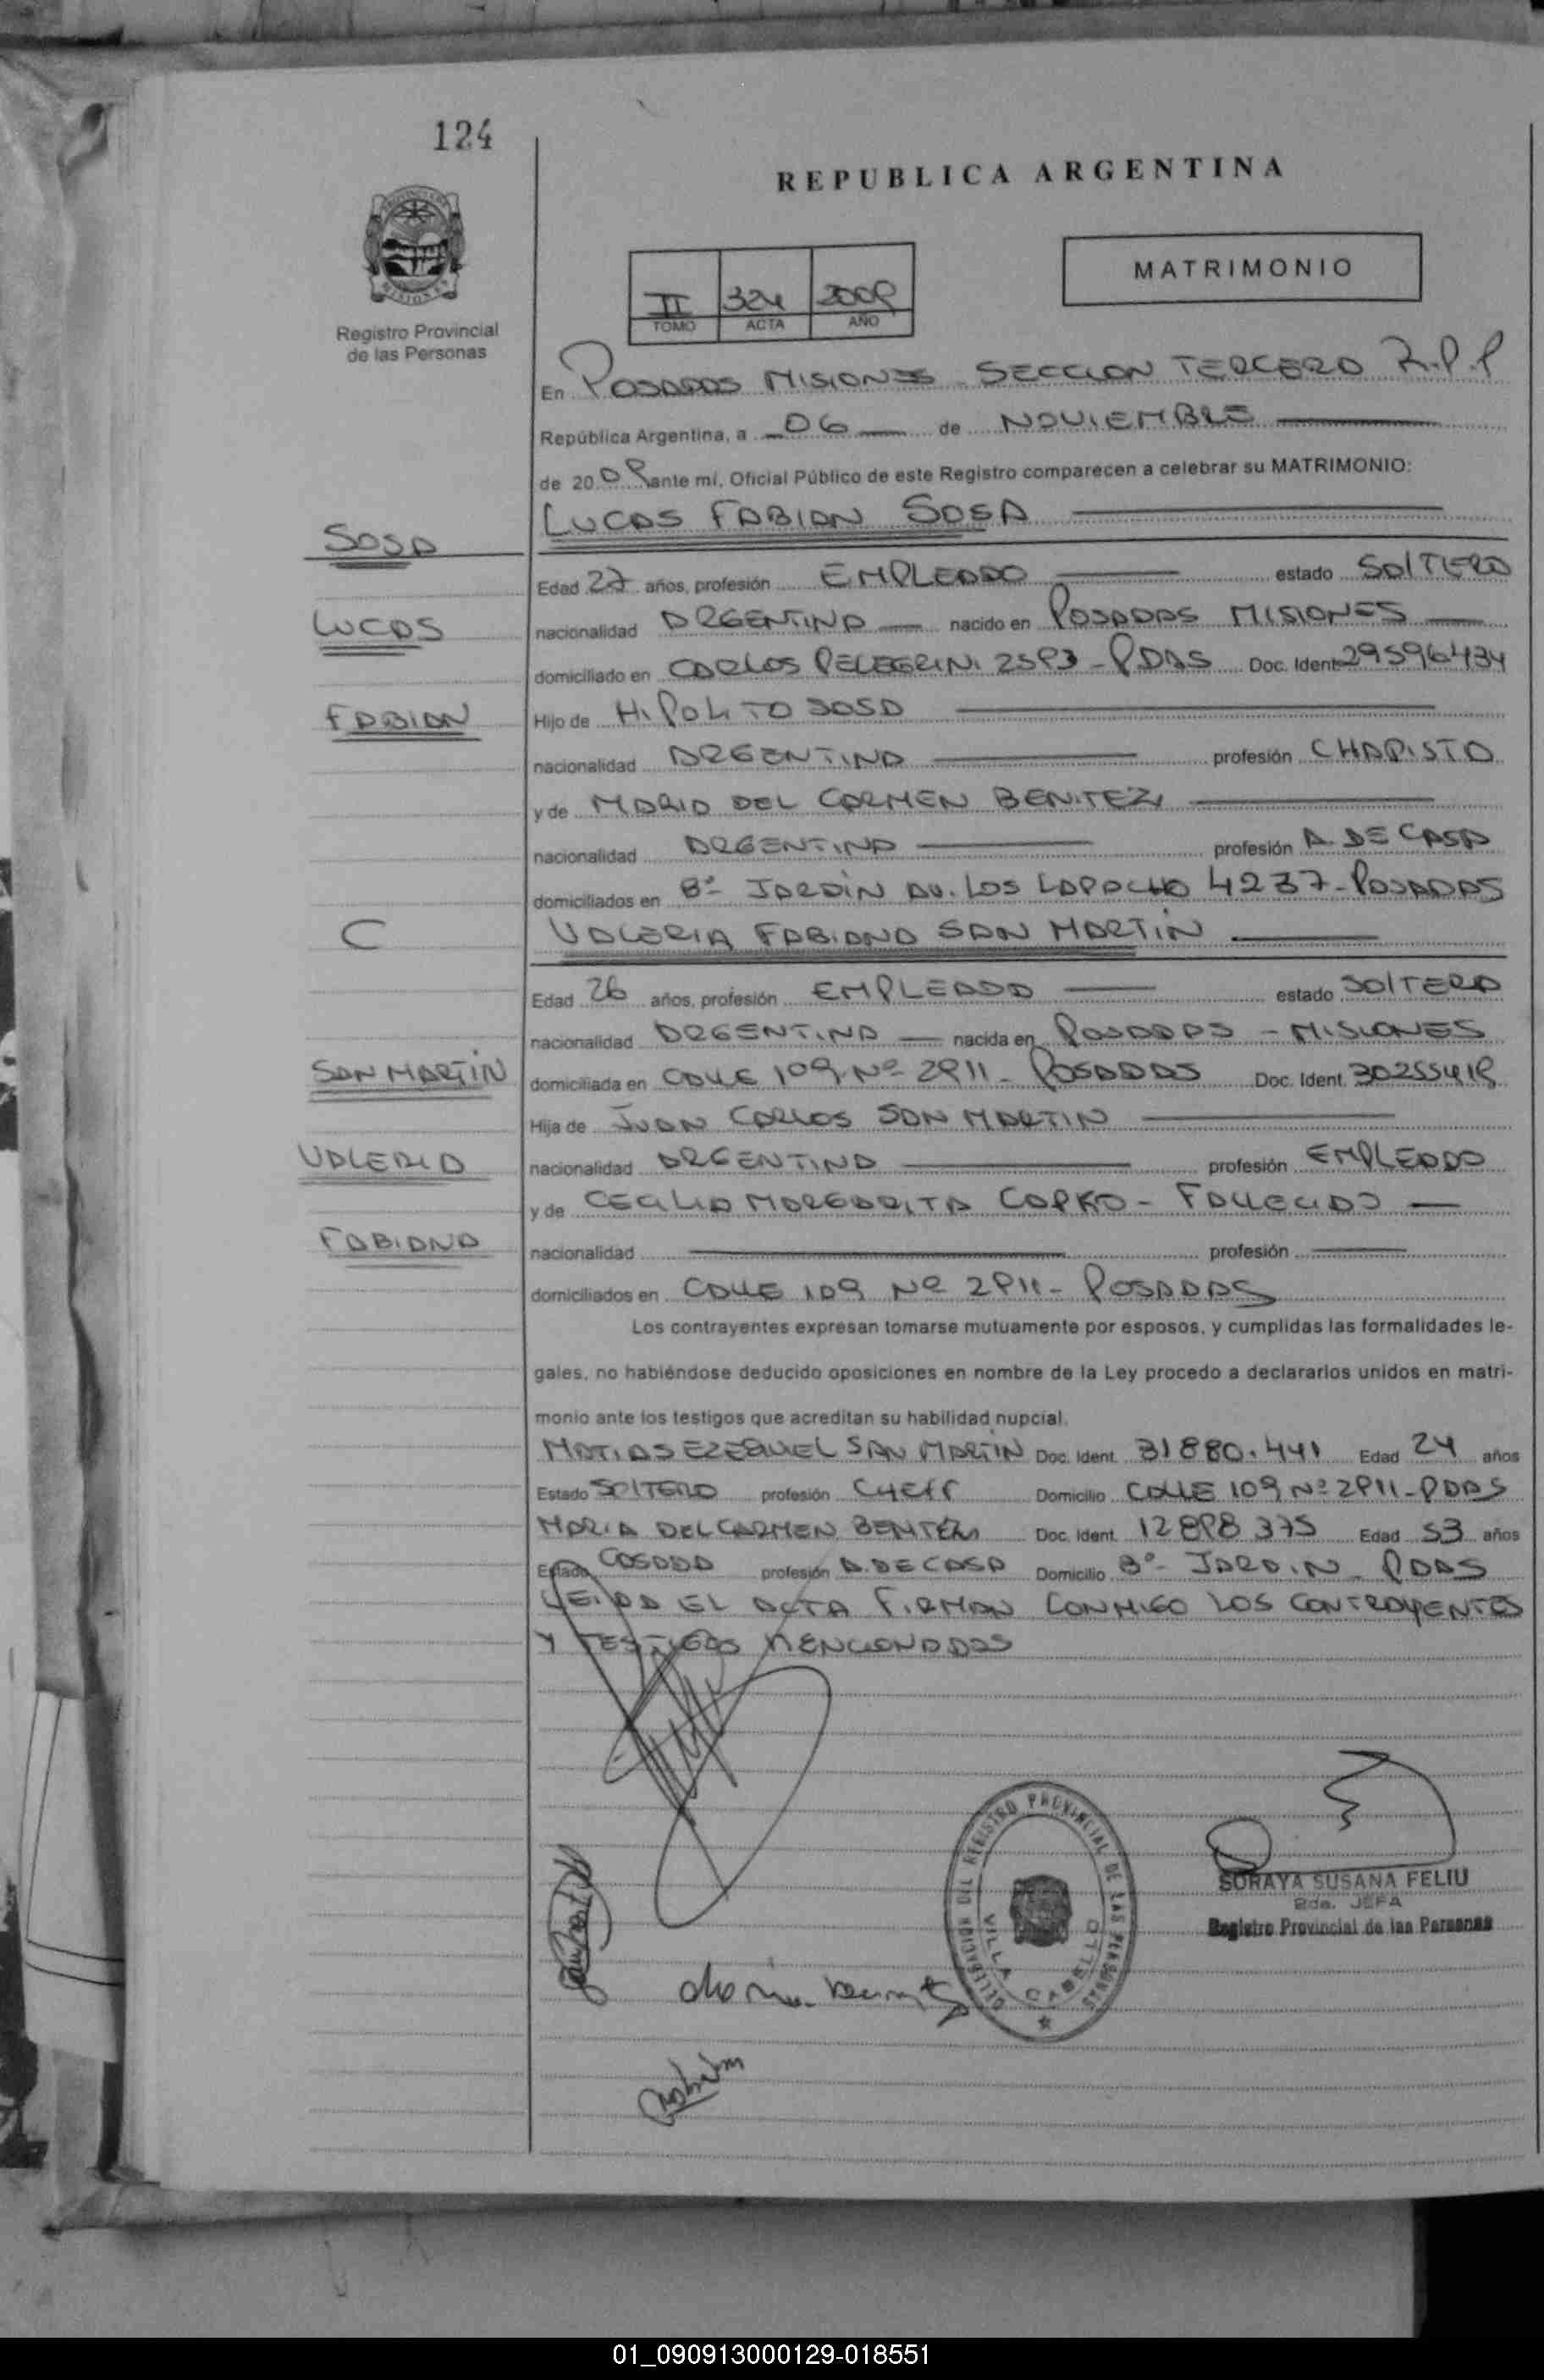 124
REPUBLICA ARGENTINA
MATRIMONIO
II 324 2009
TOMO ACTA AÑO
Registro Provincial
de las Personas
En POSADAS MISIONES SECCION TERCERA R.P.P
República Argentina, a 06 de NOVIEMBRE
de 2009 ante mí, Oficial Público de este Registro comparecen a celebrar su MATRIMONIO:
LUCAS FABIAN SOSA
SOSA
Edad 27 años, profesión EMPLEADO estado SOLTERO
LUCAS
nacionalidad ARGENTINA nacido en POSADAS MISIONES
domiciliado en CARLOS PELEGRINI 2593 - PDAS Doc. Ident. 29596434
FABIAN
Hijo de HIPOLITO SOSA
nacionalidad ARGENTINA profesión CHAPISTA
y de MARIA DEL CARMEN BENITEZ
nacionalidad ARGENTINA profesión A. DE CASA
domiciliados en Bº JARDIN AV. LOS LAPACHO 4237 - POSADAS
C
VALERIA FABIANA SAN MARTIN
Edad 26 años, profesión EMPLEADA estado SOLTERA
nacionalidad ARGENTINA nacida en POSADAS - MISIONES
SAN MARTIN
domiciliada en CALLE 109 Nº 2911 - POSADAS Doc. Ident. 30255419
Hija de JUAN CARLOS SAN MARTIN
VALERIA
nacionalidad ARGENTINA profesión EMPLEADO
y de CECILIA MARGARITA - FALLECIDA
FABIANA
nacionalidad profesión
domiciliados en CALLE 109 Nº 2911 - POSADAS
Los contrayentes expresan tomarse mutuamente por esposos, y cumplidas las formalidades le-
gales, no habiéndose deducido oposiciones en nombre de la Ley procedo a declararlos unidos en matri-
monio ante los testigos que acreditan su habilidad nupcial.
MATIAS EZEQUIEL SAN MARTIN Doc. Ident. 31880.441 Edad 24 años
Estado SOLTERO profesión CHEFF Domicilio CALLE 109 Nº 2911 - PDAS
MARIA DEL CARMEN BENITEZ Doc. Ident. 12898375 Edad 53 años
Estado CASADA profesión A. DE CASA Domicilio Bº - JARDIN - PDAS
LEIDA EL ACTA FIRMAN CONMIGO LOS CONTRAYENTES
Y TESTIGOS MENCIONADOS
DELEGACION DEL REGISTRO PROVINCIAL DE LAS PERSONAS
VILLA CABELLO
SORAYA SUSANA FELIU
JEFA
Registro Provincial de las Personas
01_090913000129-018551